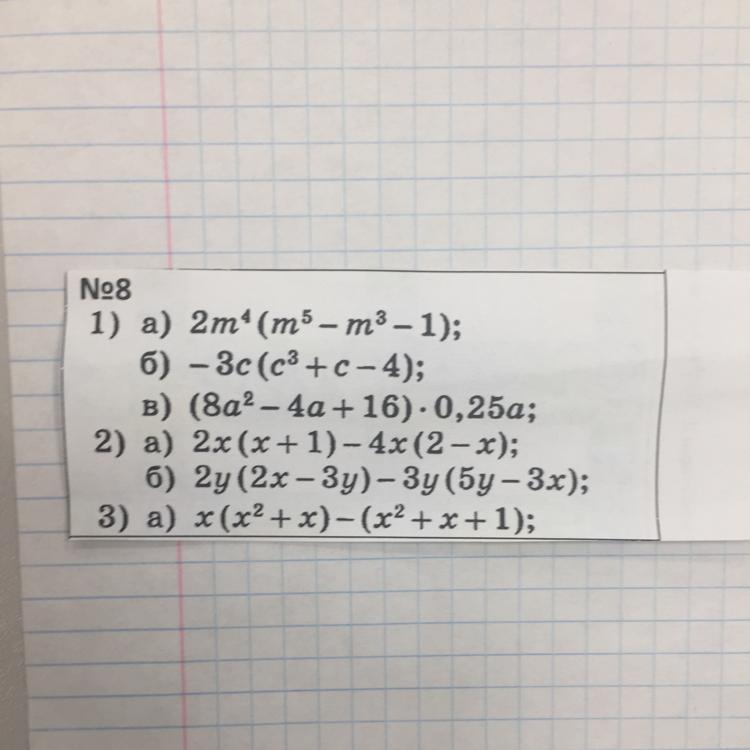 №8
1) а) 2m⁴(m⁵ – m³ – 1);
б) – 3c(c³ + c – 4);
в) (8a² – 4a + 16) · 0,25a;
2) а) 2x(x + 1) – 4x(2 – x);
б) 2y(2x – 3y) – 3y(5y – 3x);
3) а) x(x² + x) – (x² + x + 1);